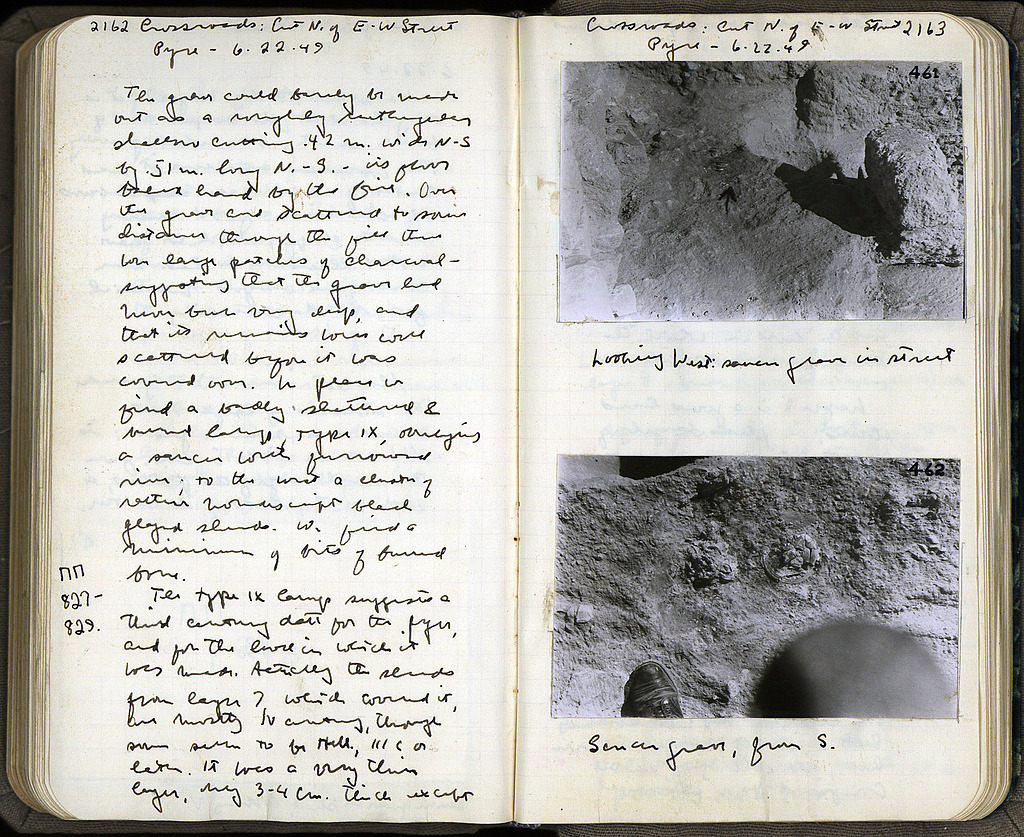 2162 Crossroads: Cut N. of E-W Street
Pyre - 6.22.49
The grave could barely be made
out as a roughly rectangular
shallow cutting .42 m. wide N-S
by .51 m. long N.-S. - its floor
baked hard by the fire. Over
the grave and scattered to some
distance through the fill there
were large patches of charcoal -
suggesting that the grave had
never been very deep, and
that its remains were well
scattered before it was
covered over. In place we
find a badly shattered &
burned lamp, type IX, overlying
a saucer with furrowed
rim; to the west a cluster of
rather nondescript black
glazed sherds. We find a
minimum of bits of burned
bone.
ΠΠ
827-
829.
The type IX lamp suggests a
third century date for the pyre,
and for the level in which it
was made. Actually the sherds
from layer 7 which covered it,
are mostly IV century, though
some seem to be Hell., III c or
later. It was a very thin
layer, only 3-4 cm. thick except
Crossroads: Cut N. of E-W Street 2163
Pyre - 6.22.49
461
Looking West: saucer grave in street
462
Saucer grave, from S.